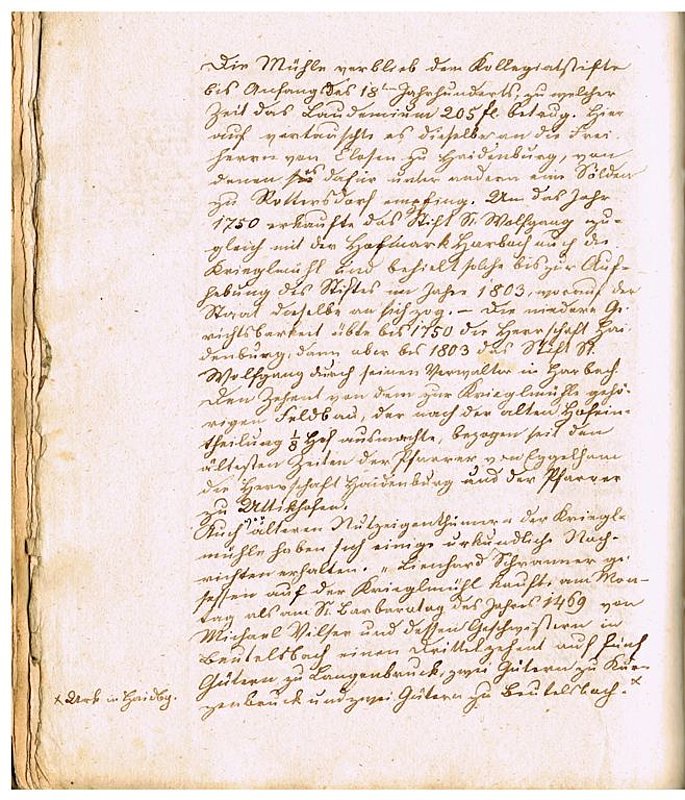 Die Mühle verblieb dem Kollegiatstifte
bis Anfangs des 18ten Jahrhunderts, zu welcher
Zeit das Laudemium 205 fl betrug. Hier
auf vertauschte es dieselbe an die Frei-
herrn von Closen zu Haidenburg, von
denen es dafür unter andern eine Sölden
zu Rottersdorf empfing. Um das Jahr
1750 erkaufte das Stift St. Wolfgang zu-
gleich mit der Hofmark Harbach auch die
Krieglmühl und behielt solche bis zur Auf-
hebung des Stiftes im Jahre 1803, worauf der
Staat dieselbe an sich zog. – Die niedere Ge-
richtsbarkeit übte bis 1750 die Herrschaft Hai-
denburg, dann aber bis 1803 das Stift St.
Wolfgang durch seinen Verwalter in Harbach.
Den Zehent von dem zur Krieglmühle gehö-
rigen Feldbau, der nach der alten Hofein-
theilung 1/8 Hof ausmachte, bezogen seit den
ältesten Zeiten der Pfarrer von Egglham
die Herrschaft Haidenburg und der Pfarrer
zu Uttikhofen.
Auch von älteren Nutzeigenthümern der Kriegl-
mühle haben sich einige urkundliche Nach-
richten erhalten. „Lienhard Schranner ge-
sessen auf der Krieglmühl kaufte am Mon-
tag als am St. Barbaratag des Jahres 1469 von
Michael Vilser und dessen Geschwistern in
Beutelsbach einen Drittelzehent auf fünf
Gütern zu Langenbruck, zwei Gütern zu Kur-
zenbruck und zwei Gütern zu Beutelsbach. x
x Urk in Haidbg.